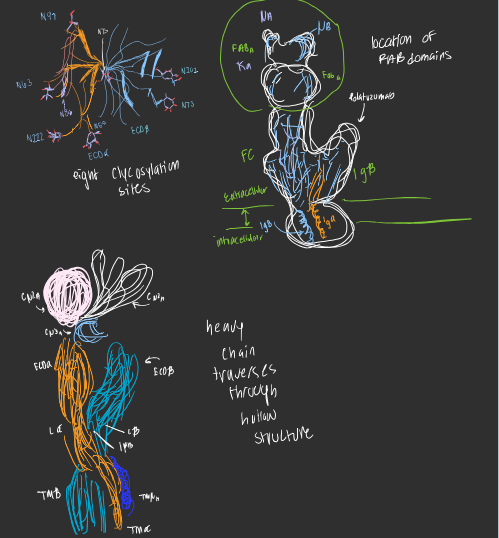 N41
N7
N63
N102
N73
N36
N112
N69
ECDB
ECDα
eight Glycosylation
sites
NA
NB
FABA
KA
Fab B
location of
FAB domains
Polatuzumab
FC
IgB
Extracellular
IgB
Igα
intracellular
CH2A
CH2A
CH3A
ECDα
ECDB
Lα
LB
TMB
TMα
heavy
chain
traverses
through
hollow
structure